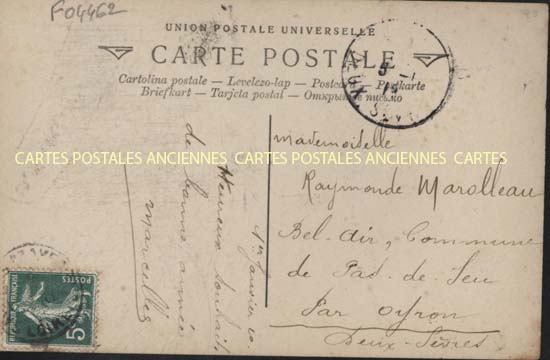 F04462
UNION POSTALE UNIVERSELLE
CARTE POSTALE
Cartolina postale — Levelezo-lap — Postcard — Postkarte
Briefkart — Tarjeta postal — Открытое письмо
CARTES POSTALES ANCIENNES CARTES POSTALES ANCIENNES CARTES
1er Janvier 10
Heureux souhait
de bonne année
Marcelle
Mademoiselle
Raymonde Marolleau
Bel-Air, Commune
de Pas-de-Jeu
Par Oyron
Deux-Sèvres
POSTES
5